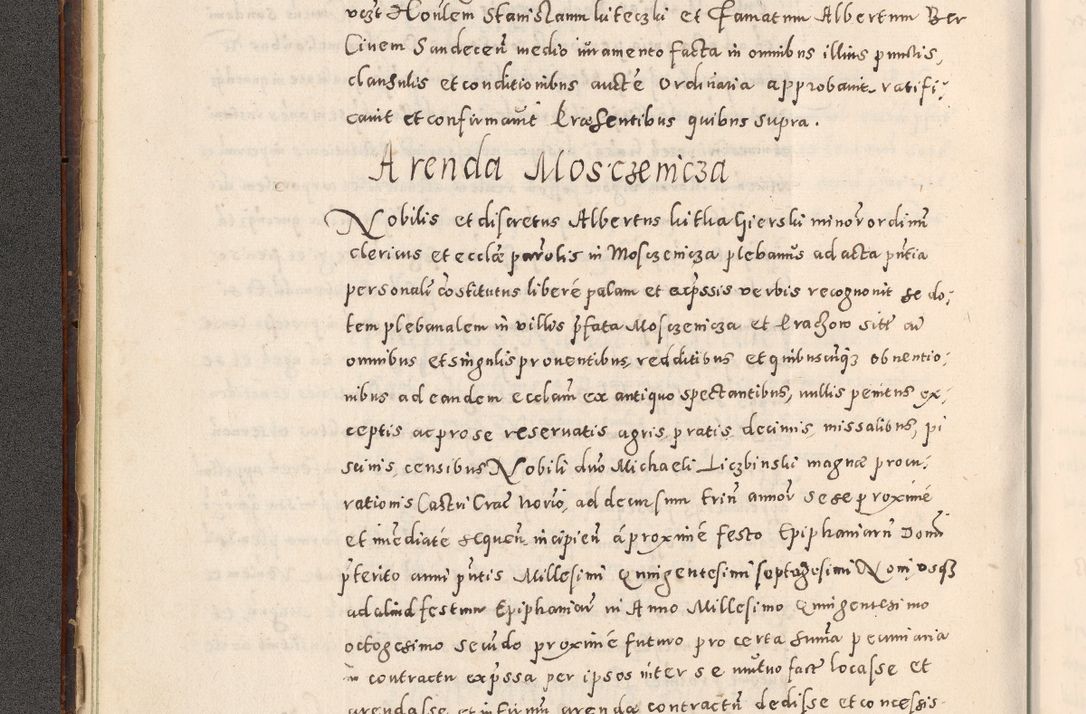 Honlem Stanislaum et Famatum Albertum Ber
Civem Sandeceñ medio iuramento facta in omnibus illius punctis,
clausulis et conditionibus aucte ordinaria approbavit ratifi;
cavit et confirmavit Præsentibus quibus supra.
Arenda Mosczenicza
Nobilis et discretus Albertus minor ordinũ
clericus et ecclæ parõlis in Mosczenicza plebanus ad acta pñtia
personalr costitutus libere palam et exp̃ssis verbis recognovit se do;
tem plebanalem in villis p̃fata Mosczenicza et sitt cũ
omnibus et singulis proventibus, redditibus et quibuscũqz obventio;
nibus ad eandem ecclam ex antiquo spectantibus, nullis penitus ex;
ceptis ac pro se reservatis agris, pratis, decimis, missalibus, pi
scinis, censibus Nobili dño Michaeli Liczbinski magnæ procu;
rationis Castri Crac Notrio, ad decursum triũ annor sese proxime
et imediate sequeñ, incipieñ á proxime festo Epiphaniarũ Domi
p̃terito anni p̃ntis Millesimi Quingentesimi septagesimi Noni, usqz
ad aliud festum Epiphaniar in Anno Millesimo Quingentesimo
octogesimo secũdo proxime futuro pro certa suma pecuniaria
in contractu exp̃ssa per ipsos inter se mutuo fact locasse et
arendasse et arendæ contractũ dedisse et concessis